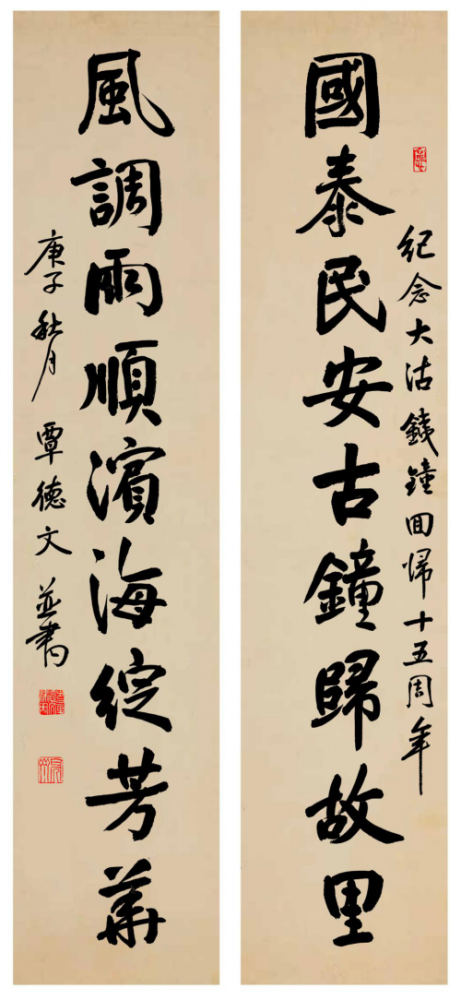 國泰民安古鐘歸故里
紀念大沽鐵鐘回歸十五周年
風調雨順濱海綻芳華
庚子秋月 覃德文並書